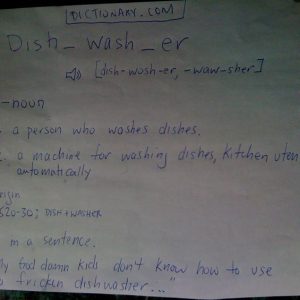 DICTIONARY.COM
Dish_wash_er
[dish-wosh-er, -waw-sher]
-noun
a person who washes dishes.
a machine for washing dishes, kitchen uten
automatically
rigin
520-30; DISH + WASHER
in a sentence.
god damn kids don't know how to use
frickin dishwasher..."